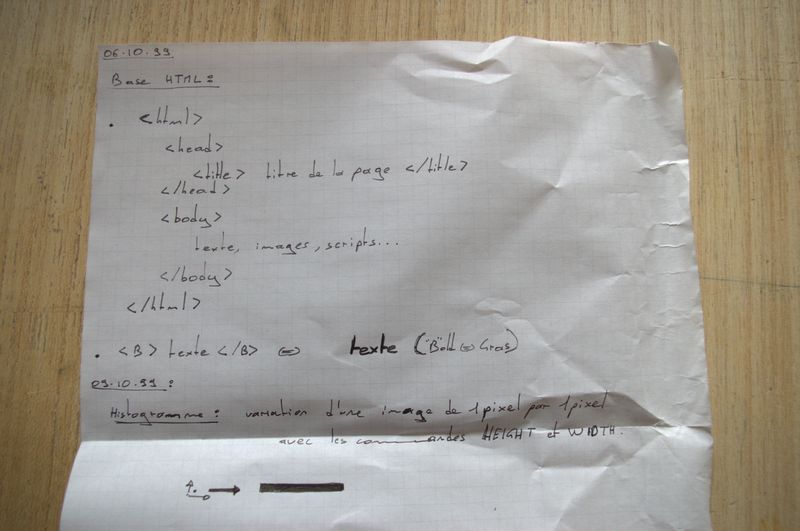 06.10.99
Base HTML :
. <html>
<head>
<title> titre de la page </title>
</head>
<body>
texte, images, scripts...
</body>
</html>
. <B> texte </B> ⇔ texte ("B"old ⇔ Gras)
09.10.99 :
Histogramme : variation d'une image de 1 pixel par 1 pixel
avec les commandes HEIGHT et WIDTH.